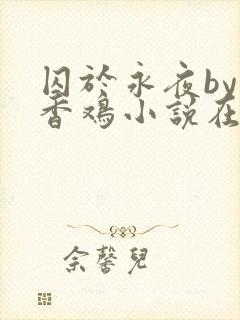 囚於永夜by
香鸡小說在
佘馨兒